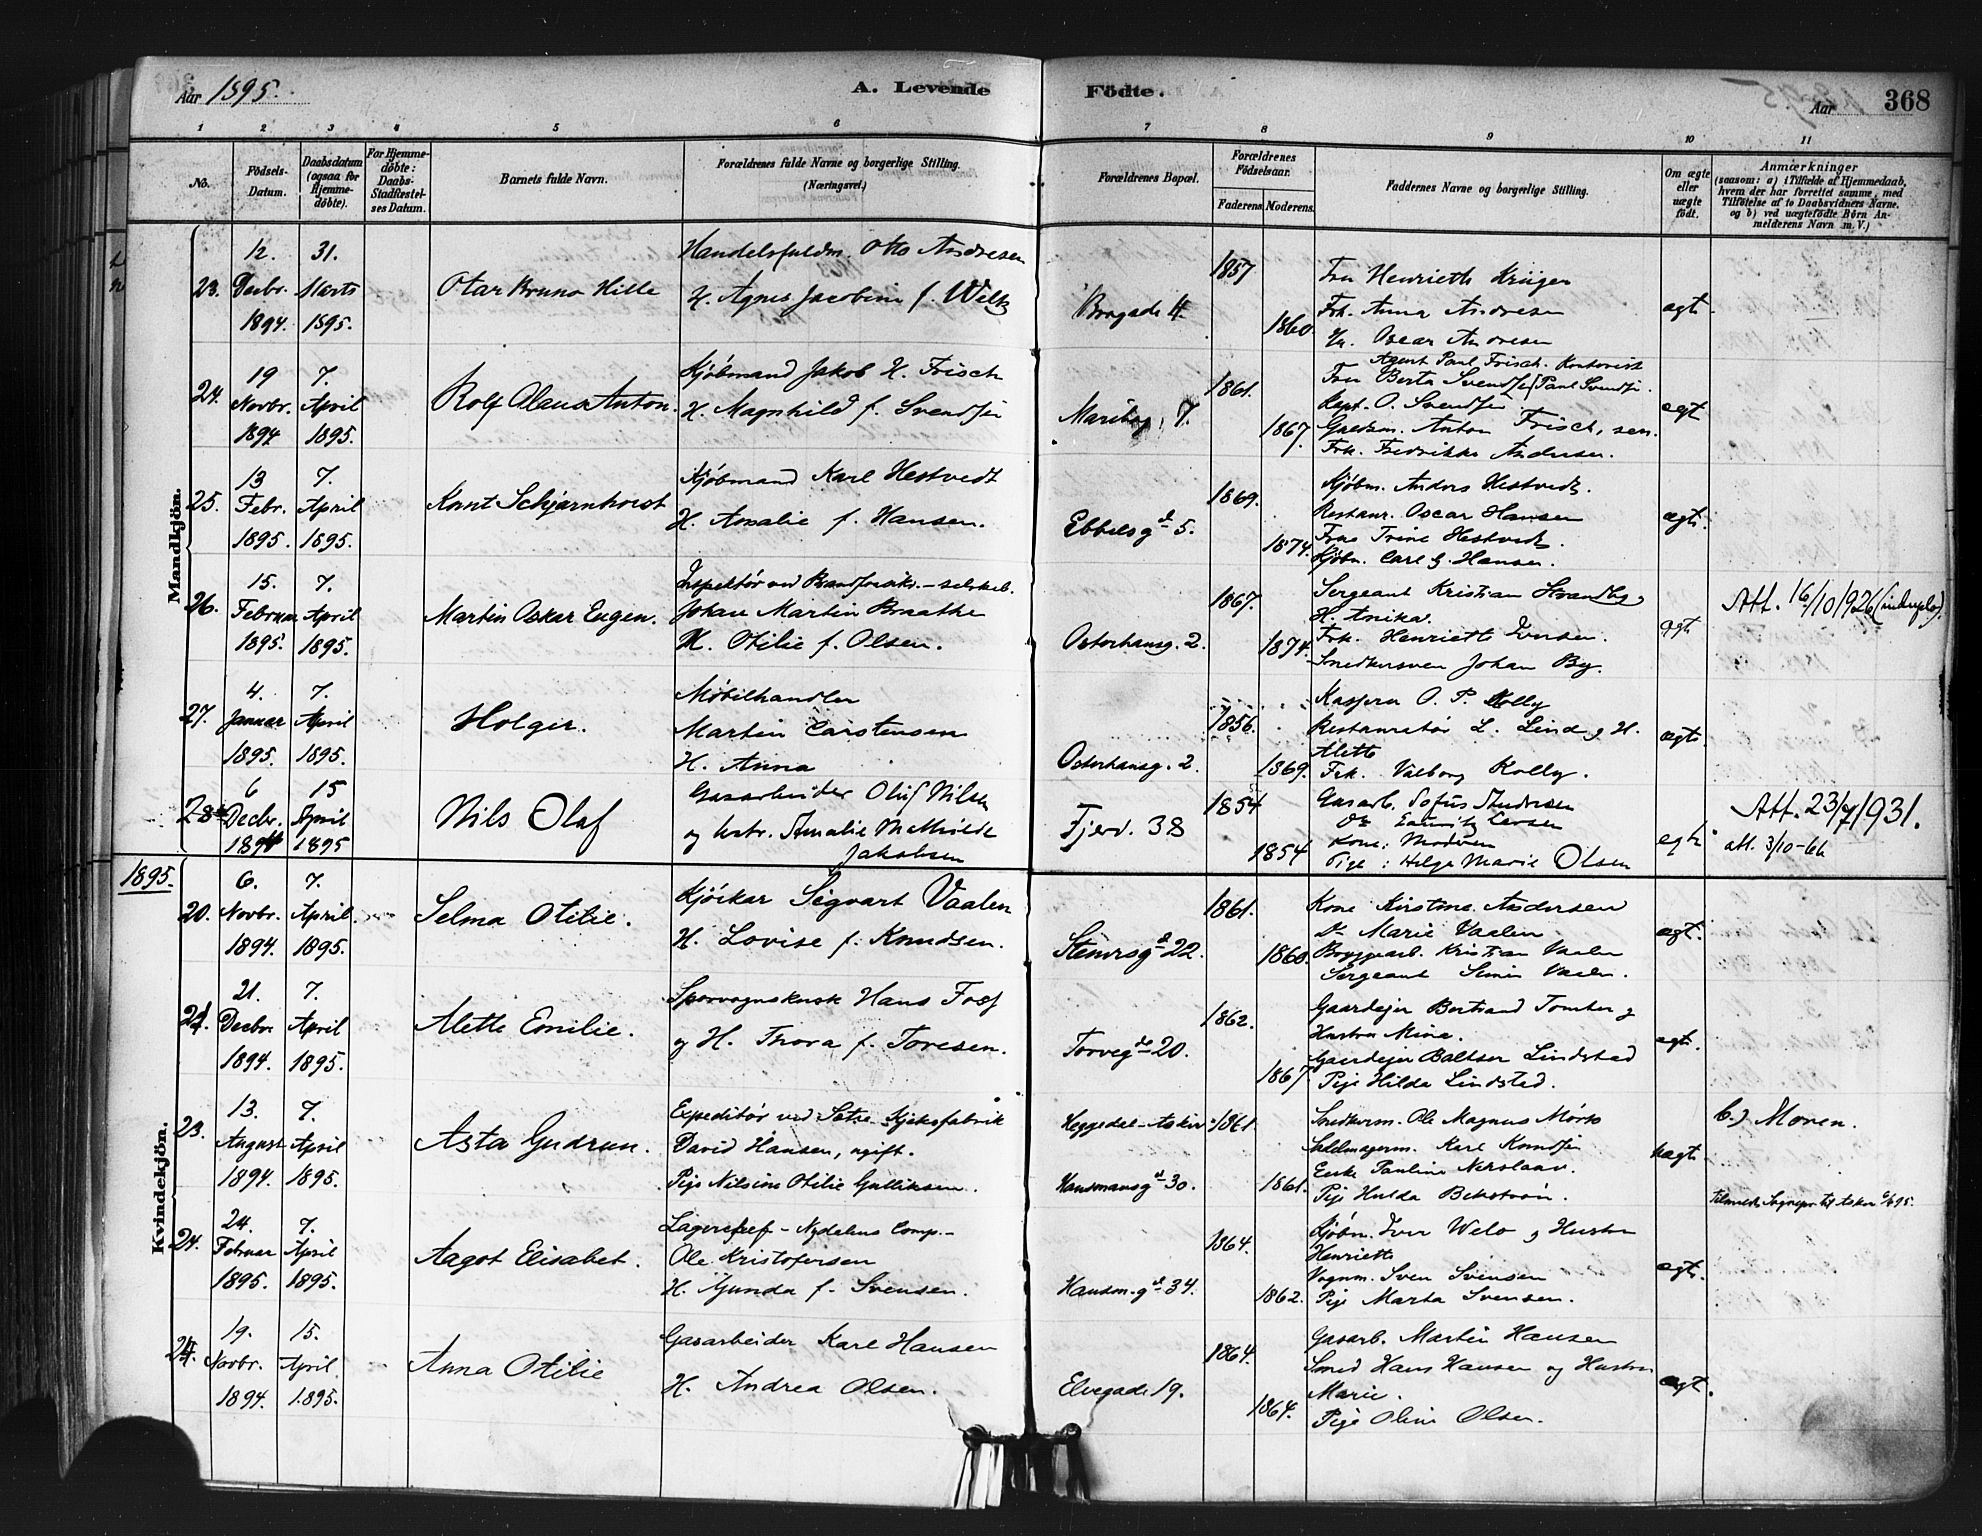 Aar 1895.
A. Levende Födte.
Aar
368
1 2 3 4 5 6 7 8 9 10 11
No.
Födsels-Datum.
Daabsdatum (ogsaa for Hjemme-döbte).
For Hjemme-döbte: Daabs-Stadfæstel-ses Datum.
Barnets fulde Navn.
Forældrenes fulde Navne og borgerlige Stilling. (Næringsvei.)
Forældrenes Bopæl.
Forældrenes Födselsaar.
Faderens. Moderens.
Faddernes Navne og borgerlige Stilling.
Om ægte eller uægte födt.
Anmærkninger
(saasom: a) i Tilfælde af Hjemmedaab, hvem der har forrettet samme, med Tilföielse af to Daabsvidners Navne, og b) ved uægtefödte Börn An-melderens Navn m. V.)
Mandkjön.
23. 12. Decbr. 1894. 31. Marts 1895.
Otar Bruno Hille
Handelsfuldm. Otto Andresen
H. Agnes Jacobine f. Welz
Brogade 4.
1857
1860.
Fru Henriette Krüger
Frk. Anna Andresen
Hr. Oscar Andresen
ægte
24. 19 Novbr. 1894 7. April 1895.
Rolf Olaus Anton.
Kjöbmand Jakob H. Frisch
H. Magnhild f. Svendsen
Maribog. 7.
1861.
1867.
Agent Paul Frisch. Kontorist
Fru Berta Svendsen Paul Svendsen.
Kapt. O. Svendsen
Gaardm. Anton Frisch, sen.
Frk. Fredrikke Andersen.
ægt
25. 13 Febr. 1895. 7. April 1895.
Knut Schjarnhorst
Kjöbmand Karl Hestvedt
H. Amalie f. Hansen.
Ebbelsgd 5.
1869.
1874.
Kjöbm. Anders Hestvedt.
Restaur. Oscar Hansen
Frue Trine Hestvedt.
Kjöbm. Carl G. Hansen.
ægte
26. 15. Februar 1895. 7. April 1895.
Martin Oskar Eugen.
Inspektör ved Brandforsikr.-selskab.
Johan Martin Braathe
H. Otilie f. Olsen.
Osterhausg. 2.
1867.
1874.
Sergeant Kristian Strandby
H. Anika.
Frk. Henriette Iversen.
Snedkersven Johan By.
ægte
Att. 16/10/926 (induplo).
27. 4. Januar 1895. 7. April 1895.
Holger.
Möbelhandler
Martin Carstensen
H. Anna
Osterhausg. 2.
1856.
1869.
Kasserer O. P. Kolby
Restauratör L. Lind og H.
Alette
Frk. Valborg Kolby.
ægte
28. 6 Decbr. 1894 15 April 1895
Nils Olaf
Gasarbeider Oluf Nilsen
og hstr. Amalie Mathilde
Jakobsen
Fjerd. 38
1854
1854
Gasarb. Sofus Andresen
Do Lauritz Larsen
Kone: Moderen
Pige: Helga Marie Olsen
ægte
Att. 23/7 1931.
att. 3/10-66
1895.
Kvindekjön.
20. 6. Novbr. 1894 7. April 1895.
Selma Otilie.
Kjörkar Sigvart Vaalen
H. Lovise f. Knudsen.
Stenersgd 22.
1861.
1860.
Kone Kirstine Andersen
Do Marie Vaalen
Bryggearb. Kristian Vaalen
Sergeant Simen Vaalen.
ægt.
21. 21. Decbr 1894. 7. April 1895.
Alette Emilie.
Sporvognskusk Hans Foss
og H. Thora f. Toresen.
Torvegd 20.
1862.
1867
Gaardejer Bertrand Tomter og
Hustru Mine.
Gaardejer Baltser Lindstad
Pige Hilda Lindstad.
ægt.
23. 13. August 1894. 7. April 1895.
Asta Gudrun.
Expeditör ved Sætre Kjæksfabrik
David Hansen, ugift.
Pige Nilsine Otilie Gulliksen.
Heggedal-Asker
Hausmansgd 30.
1861
1861.
Snedkerm. Ole Magnus Mörk
Sadelmagerm. Karl Knudsen
Enke Pauline Narslaav.
Pige Hulda Bekström.
uægt
b.) Moren.
tilmeldt Sognepr. til Asker 6/95.
24. 24. Februar 1895. 7. April 1895.
Aagot Elisabet.
Lagerchef - Nydalens Comp.-
Ole Kristofersen
H. Gunda f. Svensen.
Hausm.gd 34.
1864.
1862.
Kjöbm. Iver Welo og Hustru
Henriette
Vognm. Sven Svensen
Pige Marta Svensen.
ægte.
24. 19. Novbr. 1894. 15. April 1895.
Anna Otilie
Gasarbeider Karl Hansen
H. Andrea Olsen.
Elvegade 19.
1864.
1864.
Gasarb. Martin Hansen
Smed Hans Hansen og Hustru
Marie.
Pige Oline Olsen.
ægt.